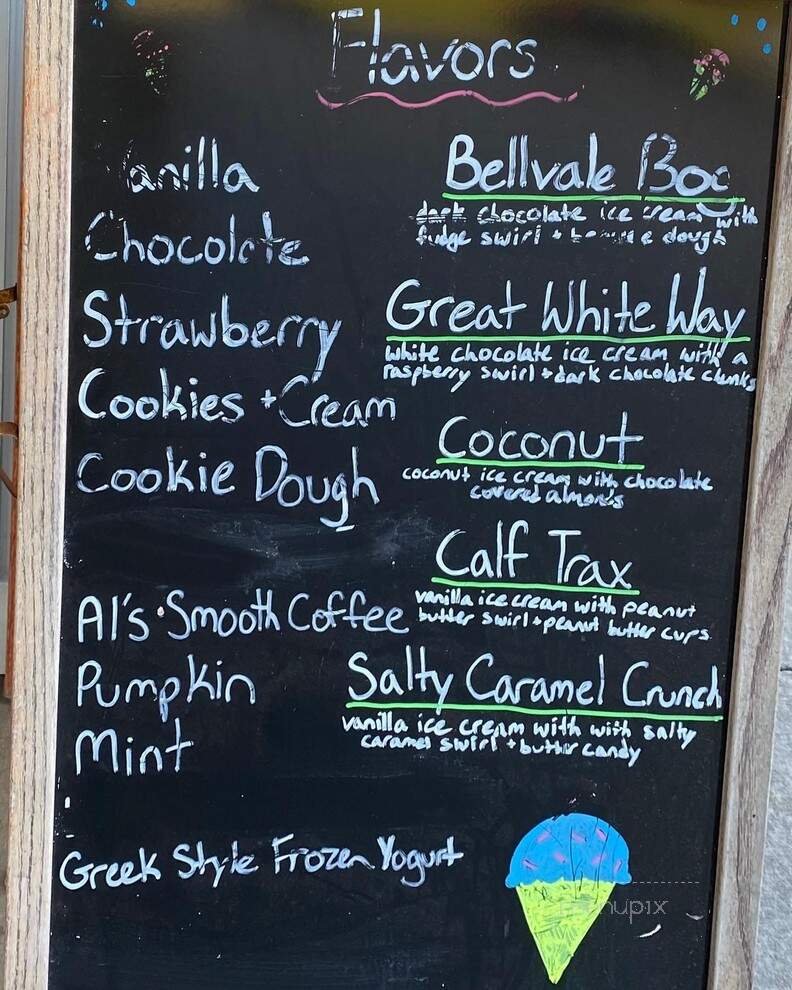 Flavors
Vanilla
Chocolate
Strawberry
Cookies + Cream
Cookie Dough
Al's Smooth Coffee
Pumpkin
Mint
Greek Style Frozen Yogurt
Bellvale
dark chocolate ice cream with
fudge swirl + dough
Great White Way
white chocolate ice cream with a
raspberry swirl + dark chocolate chunks
Coconut
coconut ice cream with chocolate
covered almonds
Calf Trax
vanilla ice cream with peanut
butter swirl + peanut butter cups
Salty Caramel Crunch
vanilla ice cream with with salty
caramel swirl + butter candy